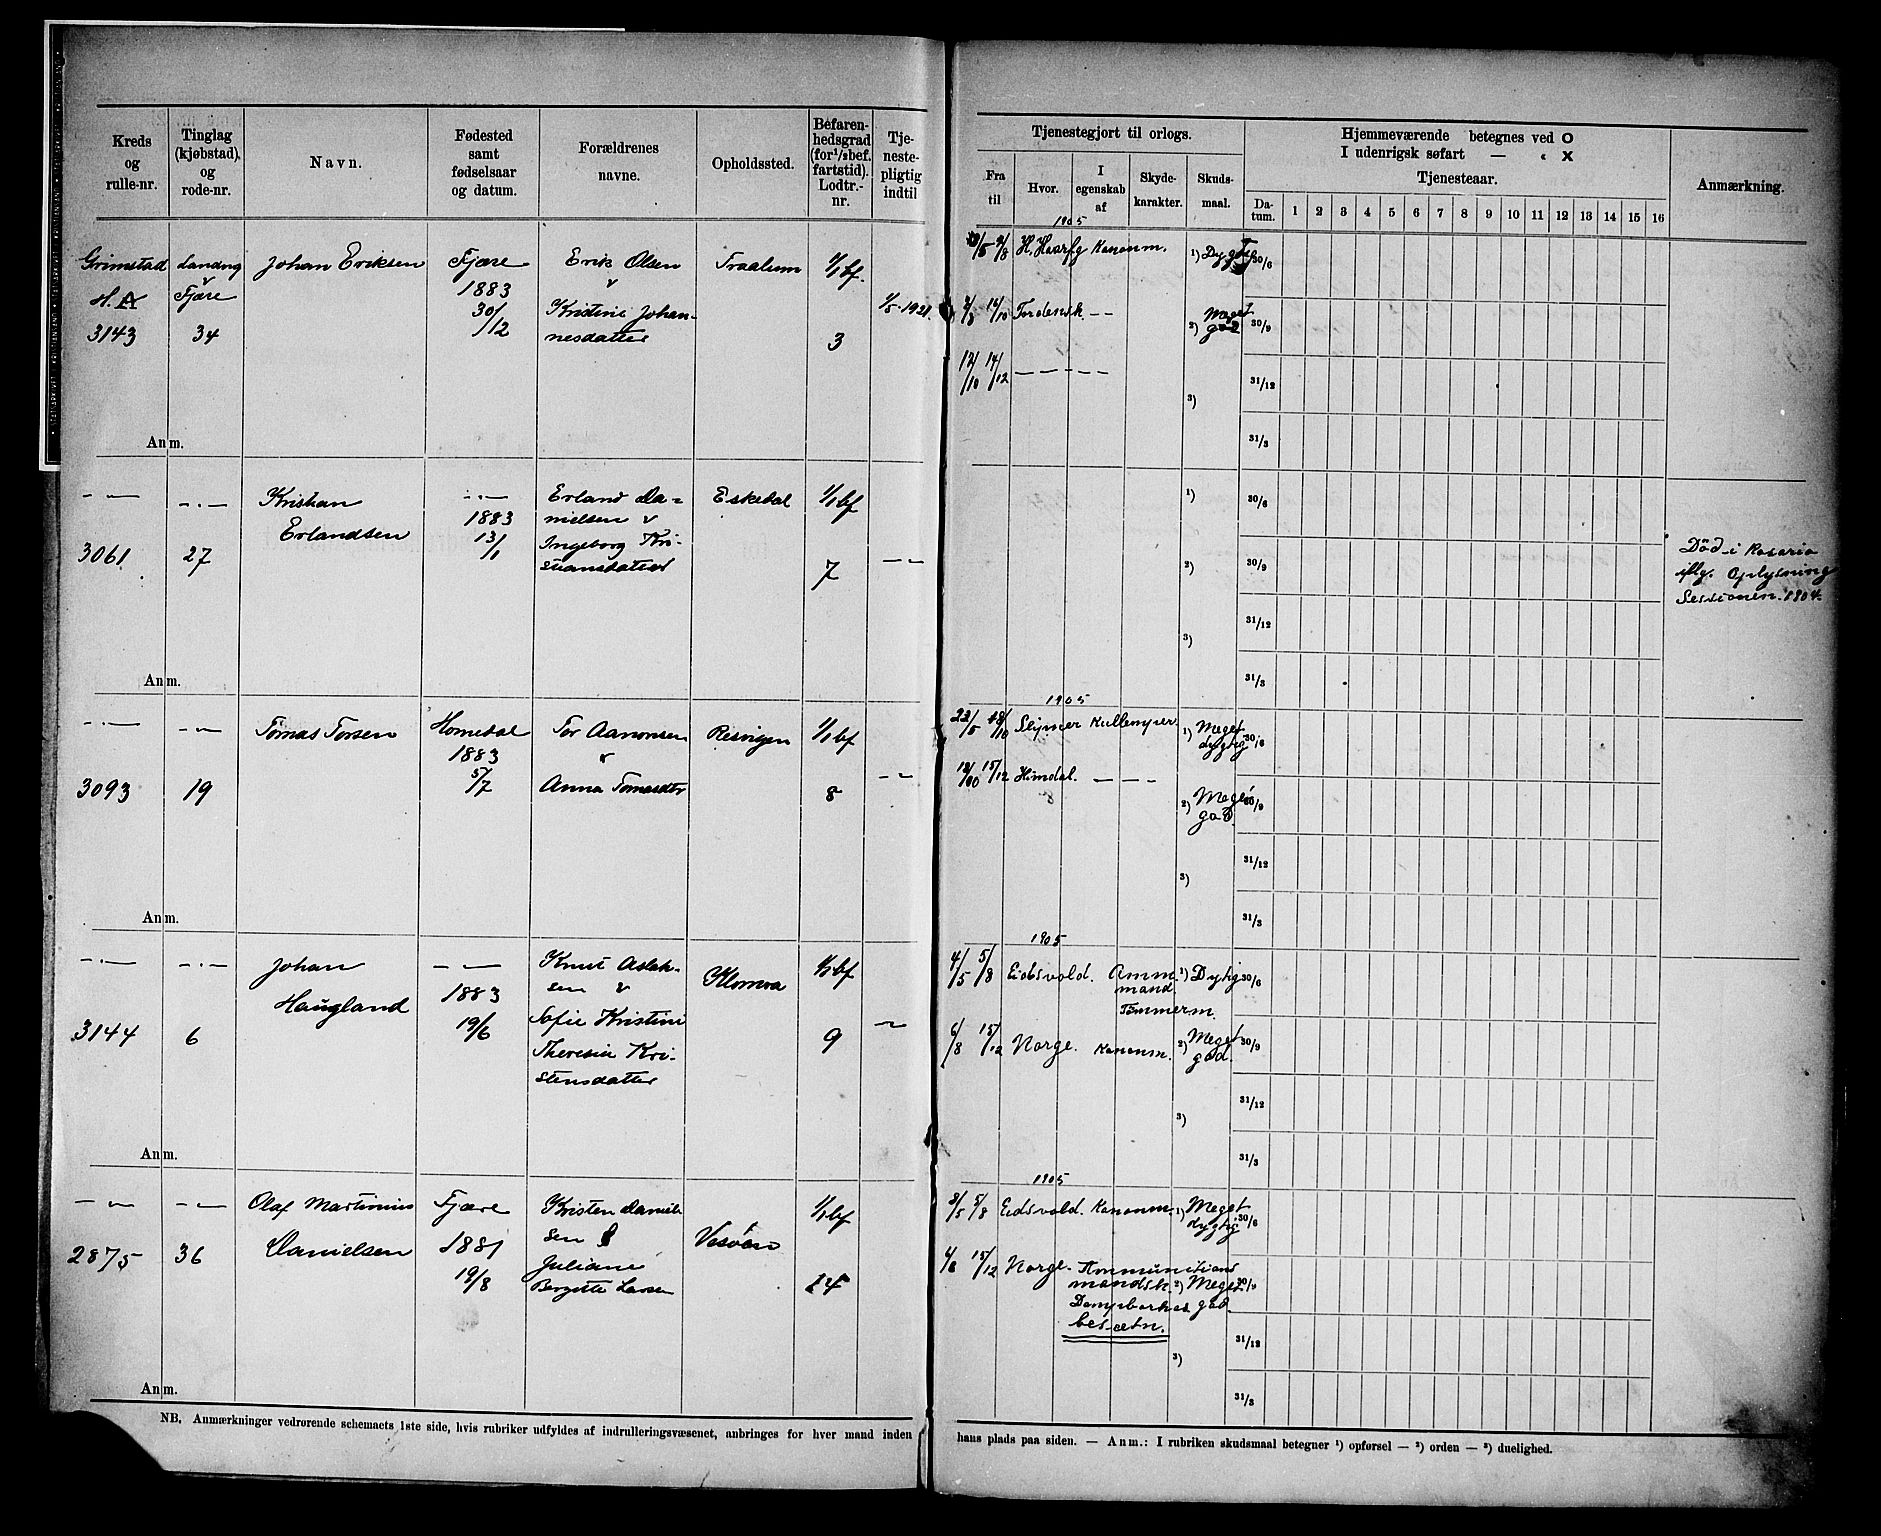 Kreds og rulle-nr.
Tinglag (kjøbstad). og rode-nr.
Navn.
Fødested samt fødselsaar og datum.
Forældrenes navne.
Opholdssted.
Befaren-hedsgrad (for 1/1 bef. fartstid). Lodtr.-nr.
Tje-neste-pligtig indtil
Tjenestegjort til orlogs.
Fra til
Hvor.
I egenskab af
Skyde-karakter.
Skuds-maal.
Hjemmeværende betegnes ved O
I udenrigsk søfart — « X
Tjenesteaar.
Da-tum. 1 2 3 4 5 6 7 8 9 10 11 12 13 14 15 16
Anmærkning.
Grimstad
H. A
3143
Landvig
Fjære
34
Johan Eriksen
Fjære
1883
30/12
Erik Olsen
&
Kristine Johan-
nesdatter
1/1 bf.
3
1/5-1921.
1905
H. Haarfg Kanonm.
1) Dygtig 30/6
2/8 16/10 Tordensk. — —
2) Meget god 30/9
17/10 14/12 — — — —
31/12
3)
31/3
Anm.
— —
3061
— . —
27
Kristian
Erlandsen
— . —
1883
13/1
Erland Da-
nielsen &
Ingeborg Kri-
stiansdatter
Eskedal
1/1 bf
7
— —
1) 30/6
2) 30/9
3) 31/12
31/3
Død i Rosario
iflg. Oplysning
Sessionen. 1904.
Anm.
— . —
3093
— —
19
Tomas Torsen
Homedal
1883
5/7
Tor Aanonsen
&
Anna Tomasdtr
Resvigen
1/1 bf
8
— —
1905
22/5 18/10 Slejpner Kullemper.
1) Meget dygtig 30/6
15/12 Heimdal. — — —
2) Meget god. 30/9
31/12
3)
31/3
Anm.
— . —
3144
— . —
6
Johan
Haugland
— —
1883
19/6
Knut Aslak-
sen &
Sofie Kristine
Theresia Kri-
stensdatter
1/1 bf
9
—
1905
4/5 5/8 Eidsvold. Amm.
mand.
Tømmerm.
1) Dygtig 30/6
6/8 15/12 Norge. Kanonm.
2) Meget god. 30/9
31/12
3)
31/3
Anm.
— —
2875
— —
36
Olaf Martinius
Danielsen
Fjære
1881
19/8
Kristen Daniel-
sen &
Juliane
Bergitte Larsen
1/1 bf
14
1905
3/5 5/8 Eidsvold. Kanonm.
1) Meget dygtig. 30/6
15/12 Norge. Ammunitions
mandsk.
Dampbarkas
besætn.
2) Meget god. 30/9
31/12
3)
31/3
Anm.
NB. Anmærkninger vedrørende schemaets 1ste side, hvis rubriker udfyldes af indrulleringsvæsenet, anbringes for hver mand inden
hans plads paa siden. — Anm.: I rubriken skudsmaal betegner 1) opførsel — 2) orden — 3) duelighed.